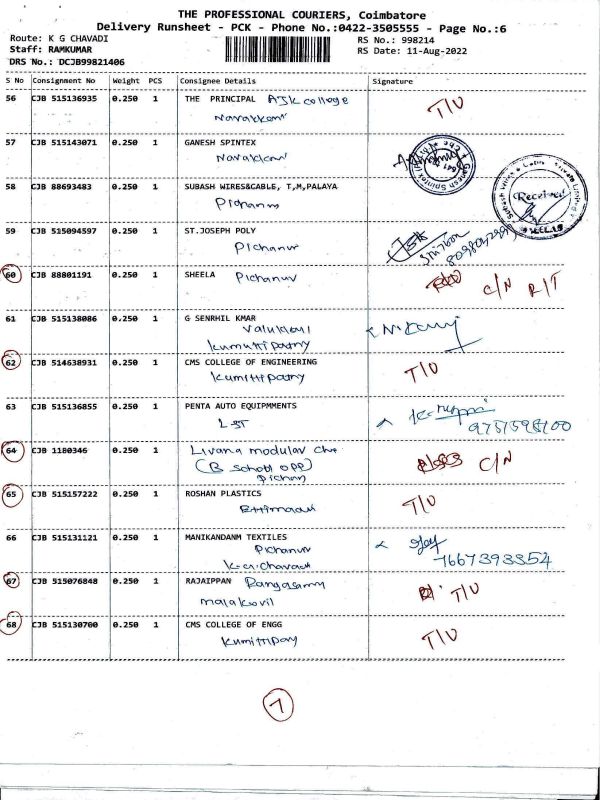 THE PROFESSIONAL COURIERS, Coimbatore
Delivery Runsheet - PCK - Phone No.:0422-3505555 - Page No.:6
Route: K G CHAVADI RS No.: 998214
Staff: RAMKUMAR RS Date: 11-Aug-2022
DRS No.: DCJB99821406
S No Consignment No Weight PCS Consignee Details Signature
56 CJB 515136935 0.250 1 THE PRINCIPAL AJK college T/U
Navakkarai
57 CJB 515143071 0.250 1 GANESH SPINTEX
Navakkarai
58 CJB 88693483 0.250 1 SUBASH WIRES&CABLE, T,M,PALAYA Received
Pichanur
59 CJB 515094597 0.250 1 ST.JOSEPH POLY
Pichanur
60 CJB 88801191 0.250 1 SHEELA Pichanur C/N R/T
61 CJB 515138086 0.250 1 G SENRHIL KMAR
Kumittipatny
62 CJB 514638931 0.250 1 CMS COLLEGE OF ENGINEERING T/U
Kumittipatny
63 CJB 515136855 0.250 1 PENTA AUTO EQUIPMMENTS
L&T
64 CJB 1180346 0.250 1 Livana modular C/N
(B School opp)
Pichan
65 CJB 515157222 0.250 1 ROSHAN PLASTICS T/U
66 CJB 515131121 0.250 1 MANIKANDANM TEXTILES
Pichanur 7667393354
K.G.Chavadi
67 CJB 515076848 0.250 1 RAJAIPPAN Rangasamy T/U
malakovil
68 CJB 515130700 0.250 1 CMS COLLEGE OF ENGG T/U
Kumittipany
7